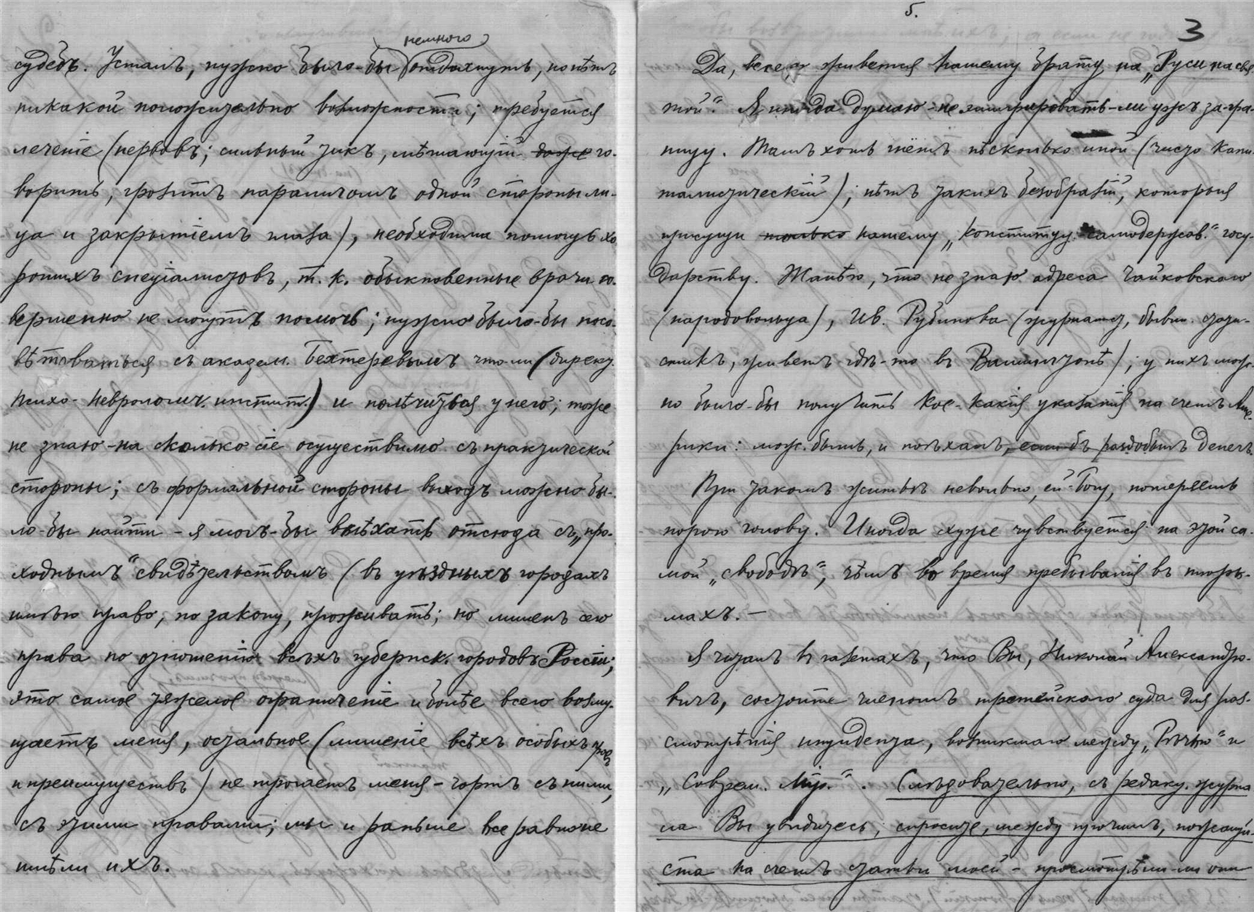 немного
судебъ. Усталъ, нужно было-бы отдохнуть, но нѣтъ
никакой положительно возможности; требуется
лечение (нервовъ; сильный тикъ, мѣшающій даже го-
ворить, грозитъ параличомъ одной стороны ли-
ца и закрытіемъ глаза), необходима помощь хо
рошихъ спеціалистовъ, т. к. обыкновенные врачи со
вершенно не могутъ помочь; нужно было-бы посо-
вѣтоваться съ академ. Бехтеревымъ что-ли (дирек.
Психо-Неврологич. инстит.) и полѣчиться у него; тоже
не знаю-на сколько сіе осуществимо съ практической
стороны; съ формальной стороны выходъ можно бы-
ло-бы найти - я могъ-бы выѣхать отсюда съ „про-
ходнымъ" свидѣтельствомъ (въ уѣздныхъ городахъ
имѣю право, по закону, проживать; но лишенъ сего
права по отношенію всѣхъ губернск. городовъ Россіи;
это самое тяжелое ограниченіе и болѣе всего возму
щаетъ меня, остальное (лишеніе всѣхъ особыхъ правъ
и преимуществъ) не трогаетъ меня - чортъ съ ними,
съ этими правами; мы и раньше все равно не
имѣли ихъ.
5.
3
Да, весело живется нашему брату на „Руси на свя
той" Я иногда думаю - не эмигрировать-ли ужъ за-гра-
ницу. Тамъ хоть гнетъ нѣсколько иной (чисто капи
талистическій); нѣтъ такихъ безобразій, которыя
присущи только нашему „конституц. самодержав." госу
дарству. Жалѣю, что не знаю адреса Чайковскаго
(народовольца), Ив. Рубинова (журнал., бывш.
живетъ гдѣ-то въ Вашингтонѣ); у нихъ мож-
но было-бы получить кое-какія указанія на счетъ Аме-
рики: мож. быть, и поѣхалъ, если-бъ раздобылъ денегъ
При такомъ житьѣ невольно, ей-Богу, потеряешь
порою голову. Иногда хуже чувствуется на этой са-
мой „свободѣ", чѣмъ во время пребыванія въ тюрь-
махъ. —
Я читалъ въ газетахъ, что Вы, Николай Александро-
вичъ, состоите членомъ третейскаго суда для раз-
смотрѣнія инцидента, возникшаго между „Рѣчью" и
„Соврем. Міръ". Слѣдовательно, съ редакц. журна
ла Вы увидитесь, спросите, между прочимъ, пожалуй-
ста на счетъ статьи моей - просмотрѣли-ли они